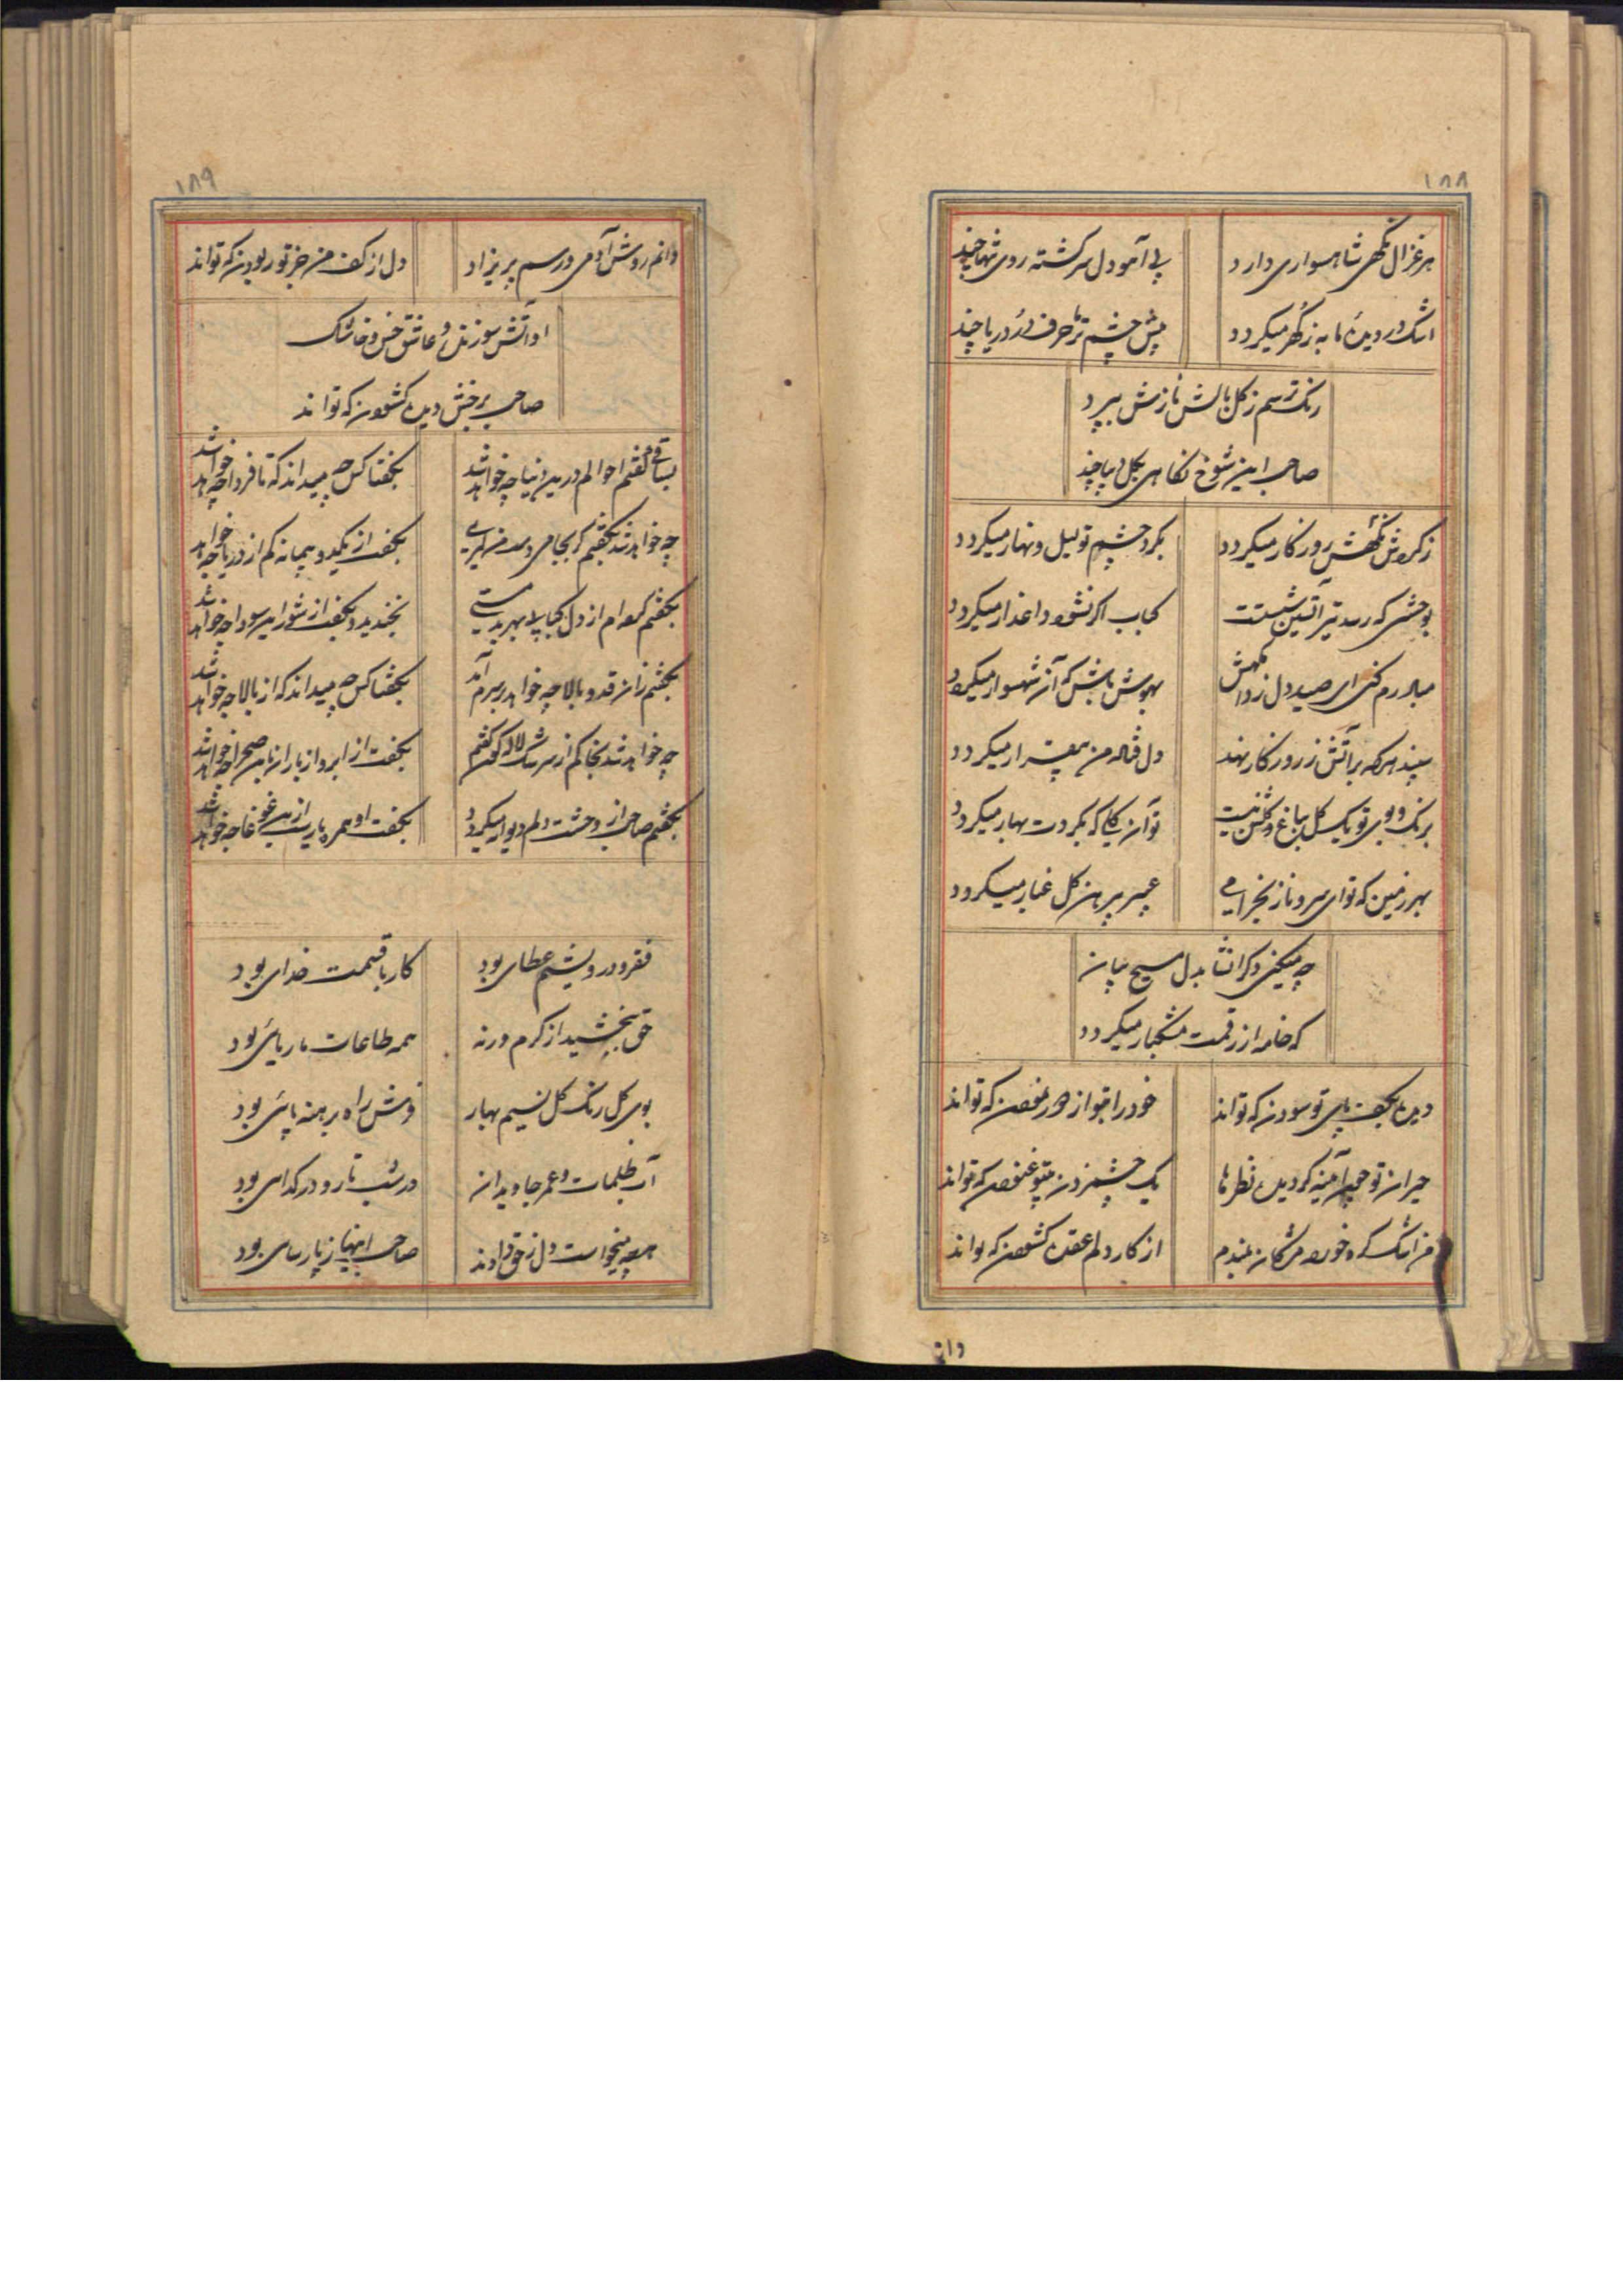 ۱۸۸
هر غزال نگهی شاهسواری دارد
پی آهو دل سرکشته روی تنها چند
اشک در دیدهٔ ما به ز کهر میکردد
پیش چشم تر ما حرف در و دریا چند
رنک ترسم ز کل بالش نازش ببرد
صاحب این شوخ نکاهی بکل دیبا چند
ز کردش نکهش روزکار میکردد
بکرد چشم تو لیل و نهار میکردد
بوحشی که رسد تیر آتشین شستت
کباب اکر نشود داغدار میکردد
مباد رم کنی ای صید دل ز دام نکهش
بهوش باش که آن شهسوار میکردد
سپند هر که بر آتش ز روزکار نهد
دل فتاده من بیقرار میکردد
برنک و بوی تو یک کل بباغ و کلشن نیست
تو آن کلی که بکردت بهار میکردد
بهر زمین که تو ای سرو ناز بخرامی
عبیر پیرهن کل غبار میکردد
چه میکنی دکر انشا بدل مسیح بیان
که خامه از رقمت مشکبار میکردد
دیده بکف پای تو سودن که تواند
خود را بتو از دور نمودن که تواند
حیران تو چون آینه کردیده نظرها
یک چشم زدن بیتو غنودن که تواند
من اشک کره خورده مژکان بلندم
از کار دلم عقده کشودن که تواند
دانم
۱۸۹
دانم روش آدمی و رسم پریزاد
دل از کف من جز تو ربودن که تواند
او آتش سوزنده و عاشق خس و خاشاک
صاحب برخش دیده کشودن که تواند
بساقی کفتم احوالم درین دنیا چه خواهد شد
بکفتا کس چه میداند که تا فردا چه خواهد شد
چه خواهد شد بکفتم کر بجامی
بکفت از یکدو پیمانه کم از دریا چه خواهد
بکفتم کمره ام از دل
بخندید و بکفت از شور این سودا چه خواهد شد
بکفتم زان قد و بالا چه خواهد بر سرم آمد
بکفتا کس چه میداند که از بالا چه خواهد شد
چه خواهد شد بخاکم از سرشک لاله کون کفتم
بکفت از ابر و از باران باین صحرا چه خواهد شد
بکفتم صاحب از وحشت دلم دیوار میکردد
بکفت او همره یار است از این غوغا چه خواهد شد
فقر و درویشیم عطای بود
کار با قیمت خدای بود
حق ببخشید از کرم ورنه
همه طاعات ما ریائی بود
بوی کل رنک کل نسیم بهار
فرش راه برهنه پائی بود
آب ظلمات و عمر جاویدان
در شب تار و در کدای بود
هر چه میخواست دل ز حق دادند
صاحب اینها ز پارسای بود